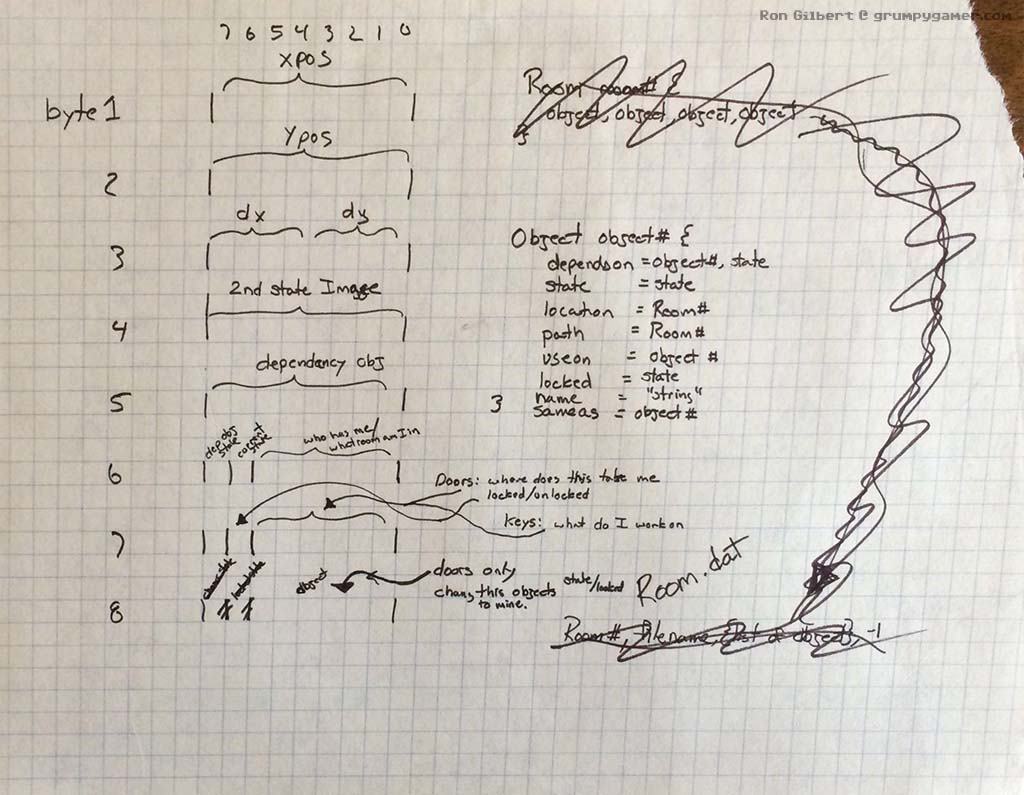 Ron Gilbert @ grumpygamer.com
7 6 5 4 3 2 1 0
xpos
byte 1
Ypos
2
dx dy
3
2nd state Image
4
dependancy obj
5
dep obj state
current state
who has me/
what room am I in
6
7
object
8
Room room# {
object, object, object, object
}
Object object# {
dependson = object#, state
state = state
location = Room#
path = Room#
useon = object #
locked = state
3 name = "string"
sameas = object#
Doors: where does this take me
locked/unlocked
Keys: what do I work on
doors only
chang this objects state/locked
to mine.
Room.dat
Room#, filename, {list of objects}, -1